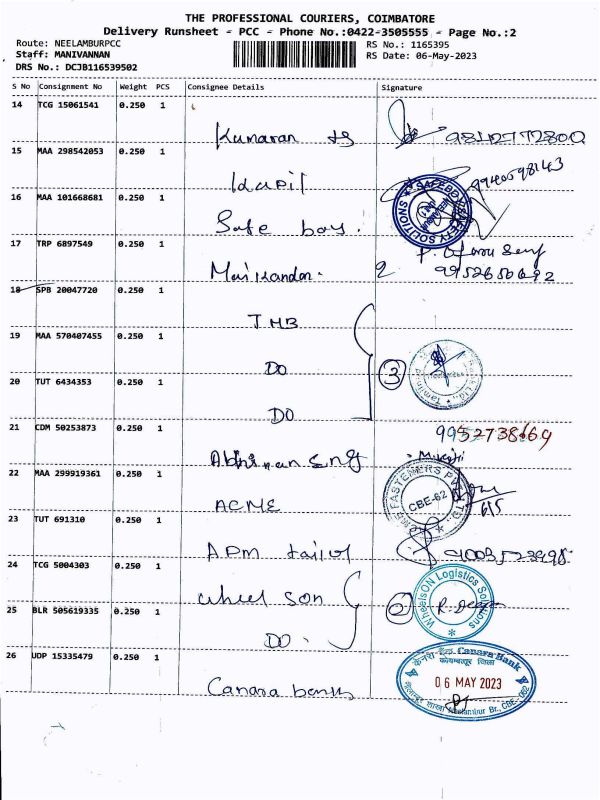 THE PROFESSIONAL COURIERS, COIMBATORE
Delivery Runsheet - PCC - Phone No.:0422-3505555 - Page No.:2
Route: NEELAMBURPCC
RS No.: 1165395
Staff: MANIVANNAN
RS Date: 06-May-2023
DRS No.: DCJB116539502
S No Consignment No Weight PCS Consignee Details Signature
14 TCG 15061541 0.250 1
Kumaran
15 MAA 298542053 0.250 1
Kapil
9940598143
16 MAA 101668681 0.250 1
Safe boy.
SAFEBOY SAFETY SOLUTIONS
17 TRP 6897549 0.250 1
Manikandan. 2
9952650692
18 SPB 20047720 0.250 1
TMB
19 MAA 570407455 0.250 1
DO
3
20 TUT 6434353 0.250 1
DO
21 CDM 50253873 0.250 1
9952738669
Abhiman engg
22 MAA 299919361 0.250 1
ACME
ACME FASTENERS PVT. LTD.
CBE-62
615
23 TUT 691310 0.250 1
APM tailor
24 TCG 5004303 0.250 1
wheel son
WheelSON Logistics Solutions
25 BLR 505619335 0.250 1
DO.
2
26 UDP 15335479 0.250 1
Canara bank
केनरा बैंक Canara Bank
कोयम्बत्तूर जिला
06 MAY 2023
Neelambur Br., CBE-062